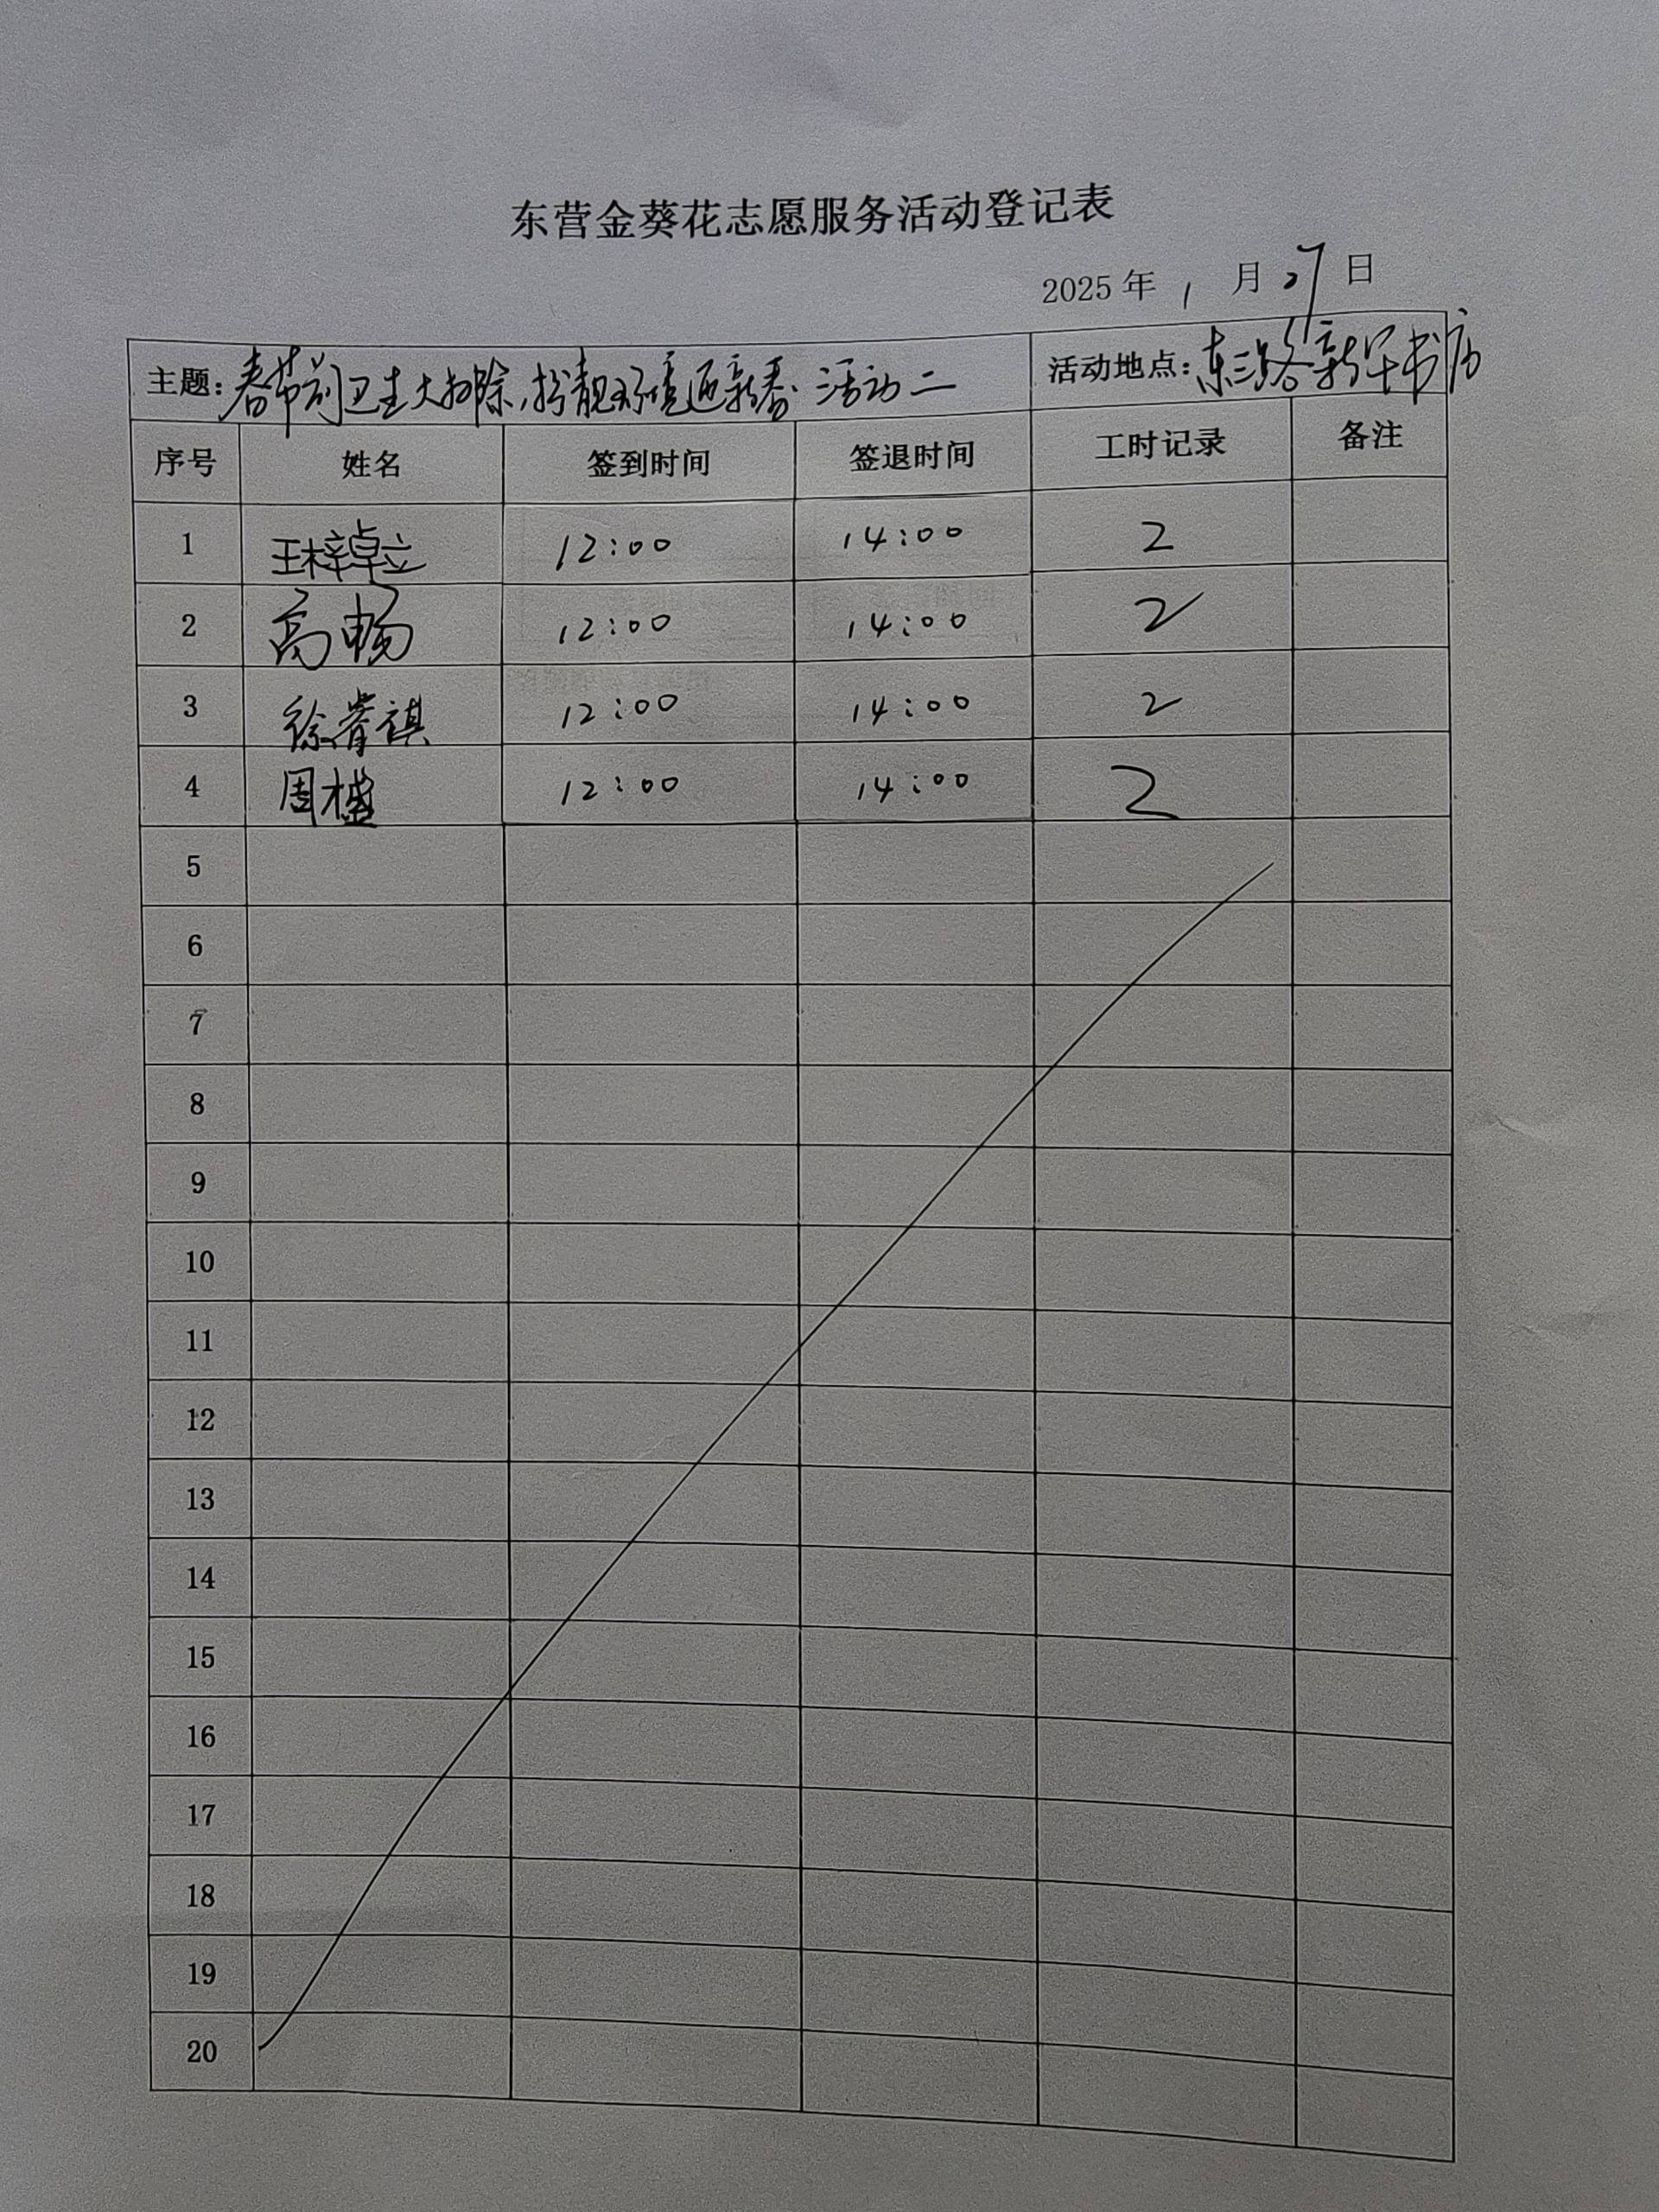 东营金葵花志愿服务活动登记表
2025 年 1 月 27 日
主题: 春节前卫生大扫除,扮靓环境迎新春 活动二 活动地点: 东三路新华书店
序号 姓名 签到时间 签退时间 工时记录 备注
1 王梓卓立 12:00 14:00 2
2 高畅 12:00 14:00 2
3 徐睿祺 12:00 14:00 2
4 周 12:00 14:00 2
5
6
7
8
9
10
11
12
13
14
15
16
17
18
19
20